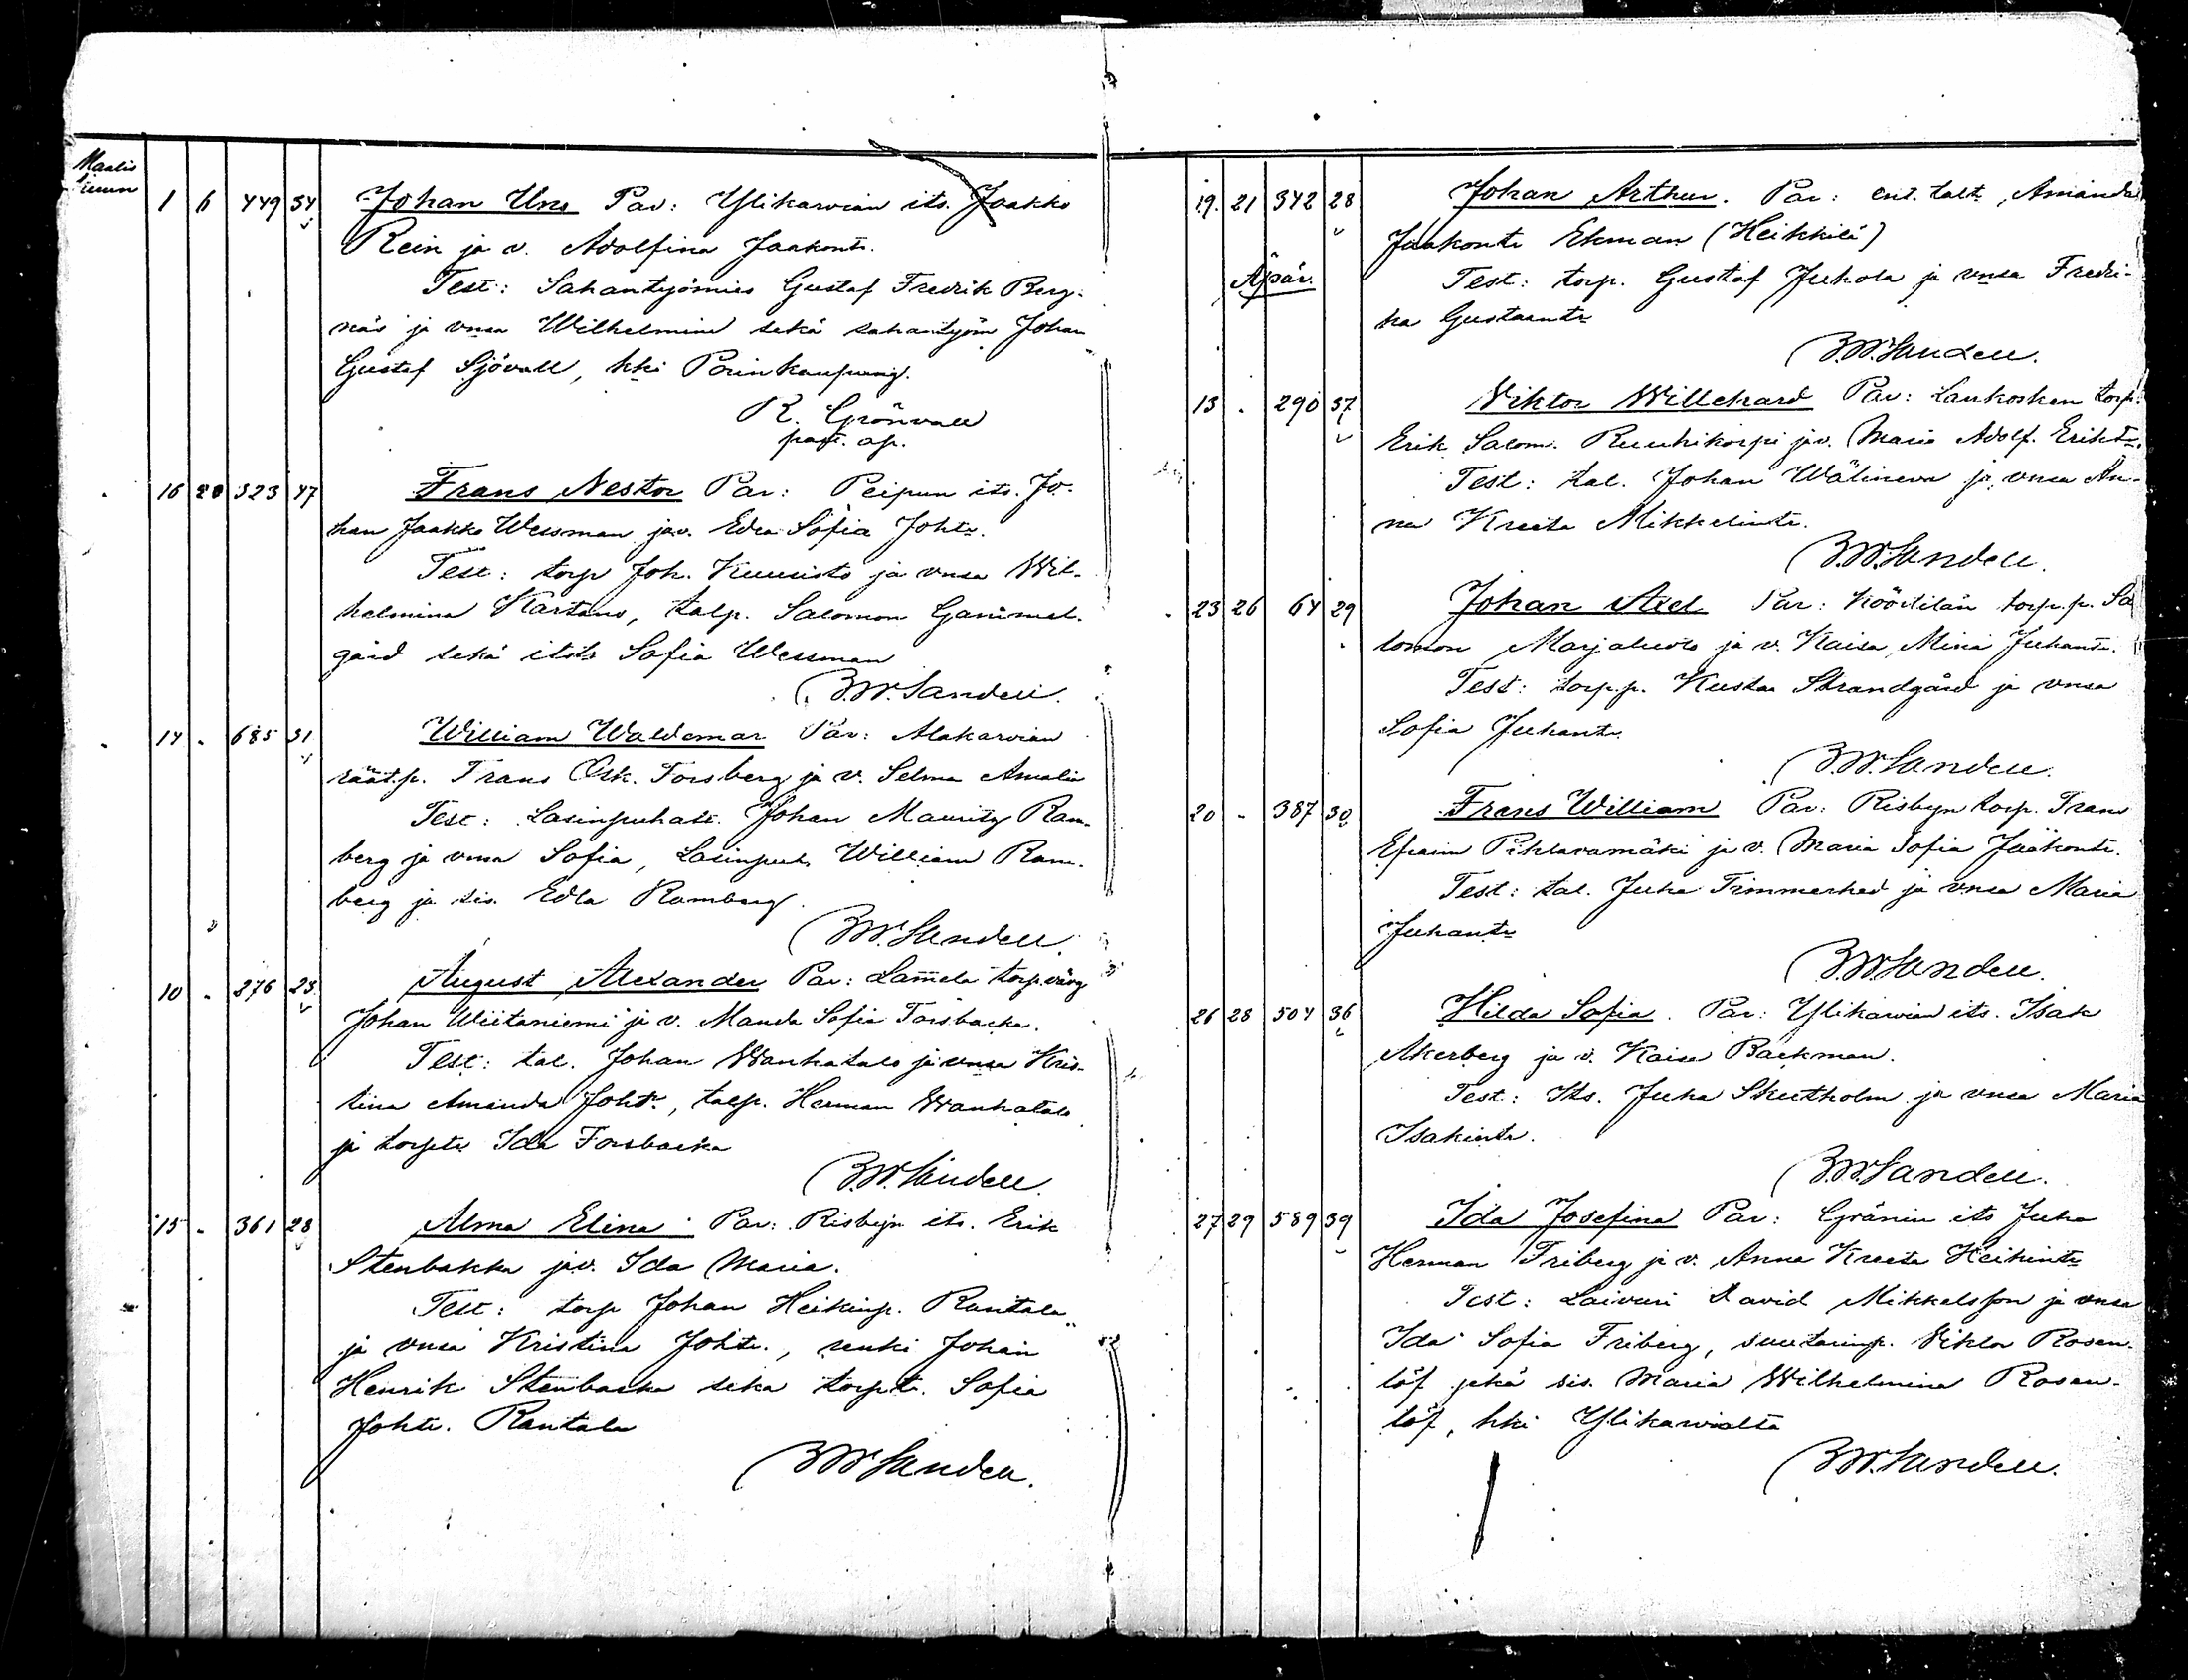 Maalis
kuun
1 6 449 34 Johan Uno Par: Ylikarvian its. Jaakko
Rein ja v. Adolfina Jaakont.
Test: Sahantyömies Gustaf Fredrik Berg-
näs ja vmsa Wilhelmina sekä sahantyöm Johan
Gustaf Sjövall, kki Porin kaupung.
R. Grönvall
past. ap.
16 20 323 47 Frans Nestor Par: Peipun its. Jo-
han Jaakko Wessman ja v. Edla Sofia Joht.
Test: torp Joh. Kuusisto ja vmsa Wil-
helmina Kartano, talp. Salomon Gammel-
gård sekä itst. Sofia Wessman
B.W. Sandell.
14 . 685 31 William Waldemar Par: Alakarvian
räät.p. Frans Osk. Forsberg ja v. Selma Amalia
Test: Lasinpuhalt. Johan Mauritz Ram-
berg ja vmsa Sofia, Lasinpuh. William Ram-
berg ja sis. Edla Ramberg.
B.W. Sandell.
10 . 276 23 August Alexander Par: Lamela torp.vävy
Johan Wiitaniemi ja v. Manda Sofia Forsbacka.
Test: tal. Johan Wanhatalo ja vmsa Kris-
tina Amanda Joht., talp. Herman Wanhatalo
ja torpt. Ida Forsbacka
B.W. Sandell.
15 . 361 28 Alma Elina Par: Risbyn its. Erik
Stenbakka ja v. Ida Maria.
Test: torp Johan Heikinp. Rantala
ja vmsa Kristina Joht., renki Johan
Henrik Stenbacka sekä torpt. Sofia
Joht. Rantala
B.W. Sandell.
19. 21 342 28 Johan Arthur. Par: ent. talt. Amanda
Jaakont. Ekman (Heikkilä)
Äpär. Test: torp. Gustaf Juhola ja vmsa Fredri-
ka Gustaant.
B.W. Sandell.
13 . 290 37 Viktor Willehard Par: Lankosken torp.
Erik Salom. Ruuhikorpi ja v. Maria Adolf. Erikt.
Test: tal. Johan Wälineva ja vmsa An-
na Kreeta Mikkelint.
B.W. Sandell.
23 26 64 29 Johan Axel Par: Köörtilän torp.p. Sa
lomon Marjaluoto ja v. Kaisa Mina Juhant.
Test: torp.p. Kustaa Strandgård ja vmsa
Sofia Juhant.
B.W. Sandell.
20 . 387 30 Frans William Par: Risbyn torp. Frans
Efraim Pihlavamäki ja v. Maria Sofia Jaakont.
Test: tal. Juha Timmerhed ja vmsa Maria
Juhant.
B.W. Sandell.
26 28 504 36 Hilda Sofia. Par: Ylikarvian its. Isak
Akerberg ja v. Kaisa Backman.
Test: Its. Juha Skutholm ja vmsa Maria
Isakint.
B.W. Sandell.
27 29 589 39 Ida Josefina Par: Gränin its Juha
Herman Friberg ja v. Anna Kreeta Heikint.
Test: Laivuri David Mikkelsson ja vmsa
Ida Sofia Friberg, suutarinp. Viktor Rosen-
löf sekä sis. Maria Wilhelmina Rosen-
löf, kki Ylikarvialta
B.W. Sandell.